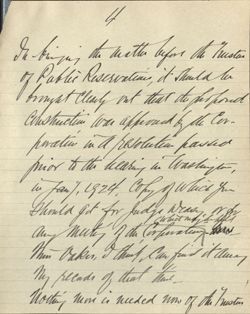 4
In bringing the matter before the Trustees
of Public Reservations, it should be
brought clearly out that the proposed
construction was approved by the Cor-
poration in a resolution passed
prior to the hearing in Washington,
in Jany. 1924. Copy of which you
should get for Judge
any meeting of the Corporation
Miss I think, can find it among
my records of that time.
Nothing more is needed now of the Trustees